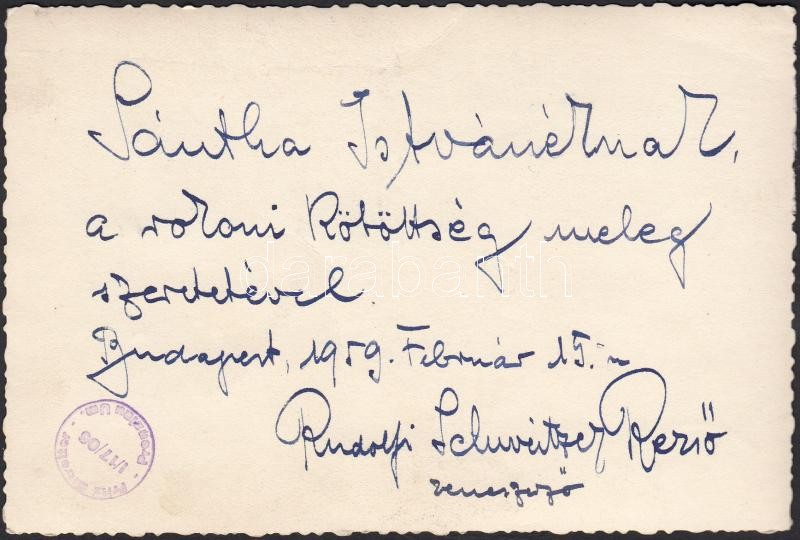 Sántha Istvánénak,
a rokoni kötöttség meleg
szeretetével.
Budapest, 1959. Február 15.-n
Rudolfi Schweitzer Rezső
zeneszerző
darabanth
1/17/06